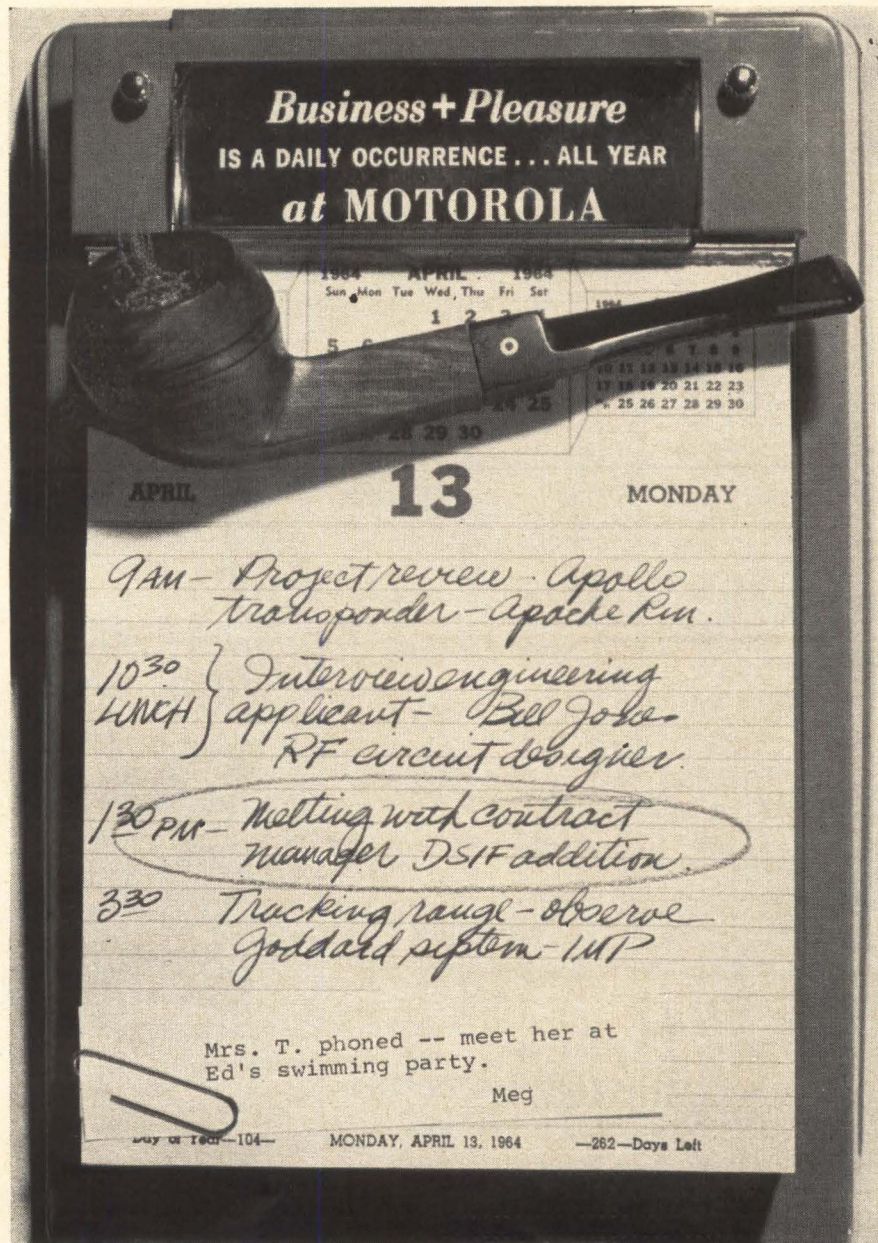 Business + Pleasure
IS A DAILY OCCURRENCE... ALL YEAR
at MOTOROLA
1964 APRIL 1964
Sun Mon Tue Wed Thu Fri Sat
1 2
5
24 25
28 29 30
1964
6 7 8 9
10 11 12 13 14 15 16
17 18 19 20 21 22 23
25 26 27 28 29 30
APRIL 13 MONDAY
9 AM - Project review - Apollo
transponder - Apache Run.
10 30 Interview engineering
LUNCH applicant - Bill Jones
RF circuit designer.
1 30 PM - Meeting with contract
manager DSIF addition.
3 30 Tracking range - observe
Goddard system - IMP
Mrs. T. phoned -- meet her at
Ed's swimming party.
Meg
Day of Year-104- MONDAY, APRIL 13, 1964 -262-Days Left